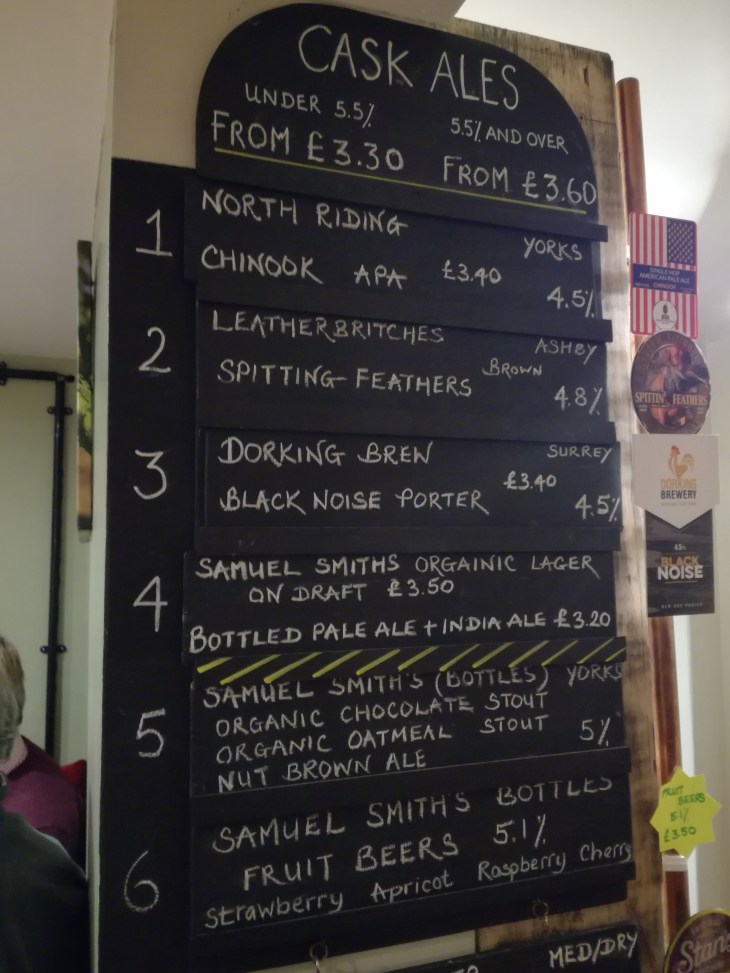 CASK ALES
UNDER 5.5%
5.5% AND OVER
FROM £3.30
FROM £3.60
1
NORTH RIDING
YORKS
CHINOOK APA £3.40
4.5%
2
LEATHERBRITCHES
ASHBY
SPITTING FEATHERS
BROWN
4.8%
3
DORKING BREW
SURREY
£3.40
BLACK NOISE PORTER
4.5%
4
SAMUEL SMITHS ORGAINIC LAGER
ON DRAFT £3.50
BOTTLED PALE ALE + INDIA ALE £3.20
5
SAMUEL SMITH'S (BOTTLES) YORKS
ORGANIC CHOCOLATE STOUT
ORGANIC OATMEAL STOUT
5%
NUT BROWN ALE
6
SAMUEL SMITH'S BOTTLES
FRUIT BEERS 5.1%
Strawberry Apricot Raspberry Cherry
MED/DRY
SINGLE HOP
AMERICAN PALE ALE
CHINOOK
SPITTIN' FEATHERS
DORKING
BREWERY
4.5%
BLACK
NOISE
FRUIT
BEERS
5.1%
£3.50
Stan's